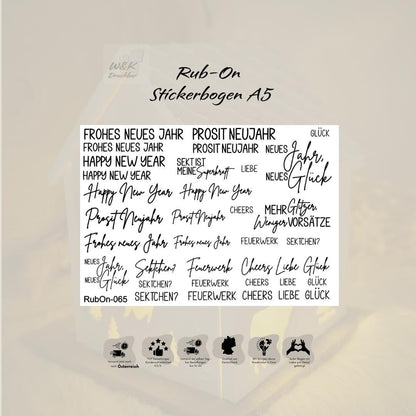 W&K
Druckbar
Rub-On
Stickerbogen A5
FROHES NEUES JAHR PROSIT NEUJAHR GLÜCK
FROHES NEUES JAHR PROSIT NEUJAHR NEUES Jahr,
HAPPY NEW YEAR SEKT IST
HAPPY NEW YEAR MEINE Superkraft LIEBE NEUES Glück
Happy New Year Happy New Year
Prosit Neujahr Prosit Neujahr CHEERS MEHR Glitzer,
Weniger VORSÄTZE
Frohes neues Jahr Frohes neues Jahr FEUERWERK SEKTCHEN?
NEUES Jahr, Sektchen? Feuerwerk Cheers Liebe Glück
NEUES Glück SEKTCHEN? FEUERWERK CHEERS LIEBE GLÜCK
RubOn-065 SEKTCHEN? FEUERWERK CHEERS LIEBE GLÜCK
Österreich